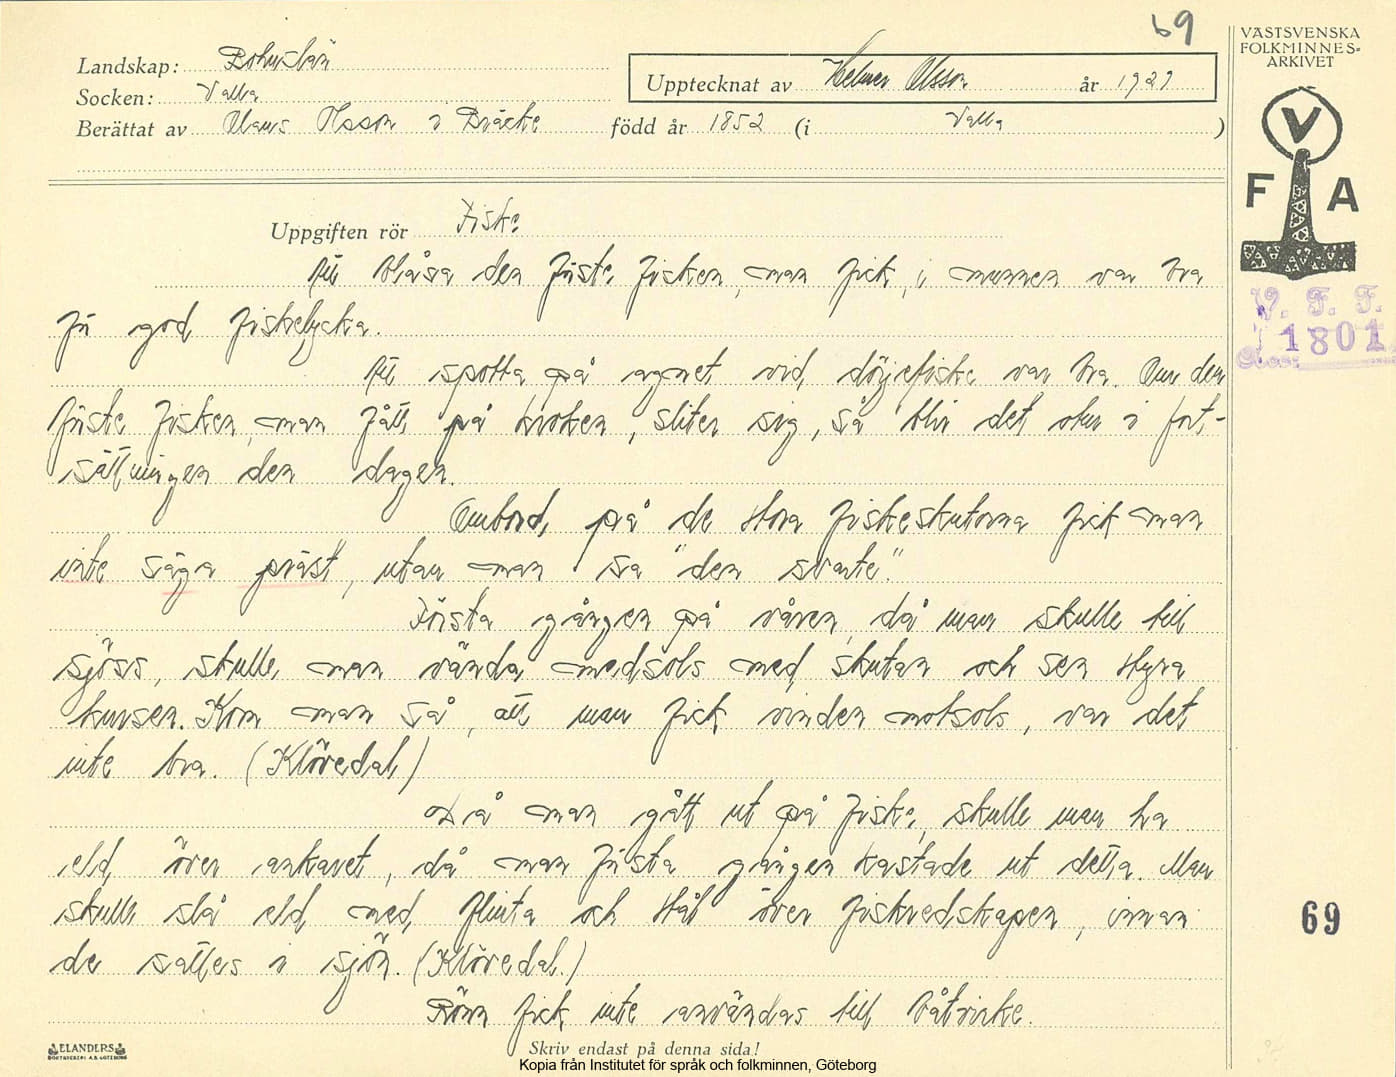 69
VÄSTSVENSKA
FOLKMINNES-
ARKIVET
Landskap: Bohuslän
Upptecknat av Helmer Olsson år 1929
Socken: Valla
Berättat av Claus Olsson i Bräcke född år 1852 (i Valla)
V
F A
Uppgiften rör Fiske
Att blåsa den första fisken, man fick, i munnen var bra
för god fiskelycka.
V. F. F.
1801
Att spotta på agnet vid dörjefiske var bra. Om den
första fisken, man fått på kroken, sliter sig, så blir det otur i fort-
sättningen den dagen.
Ombord på de stora fiskeskutorna fick man
inte säga präst, utan man sa "den svarte".
Första gången på våren, då man skulle till
sjöss, skulle man vända medsols med skutan och sen styra
kursen. Kom man så, att man fick vinden motsols, var det
inte bra. (Klövedal)
Då man gått ut på fiske, skulle man ha
eld över ankaret, då man första gången kastade ut detta. Man
skulle slå eld med flinta och stål över fiskredskapen, innan
69
de sattes i sjön. (Klövedal.)
Rönn fick inte användas till båtvirke.
ELANDERS
BOKTRYCKERI A.B. GÖTEBORG
Skriv endast på denna sida!
Kopia från Institutet för språk och folkminnen, Göteborg